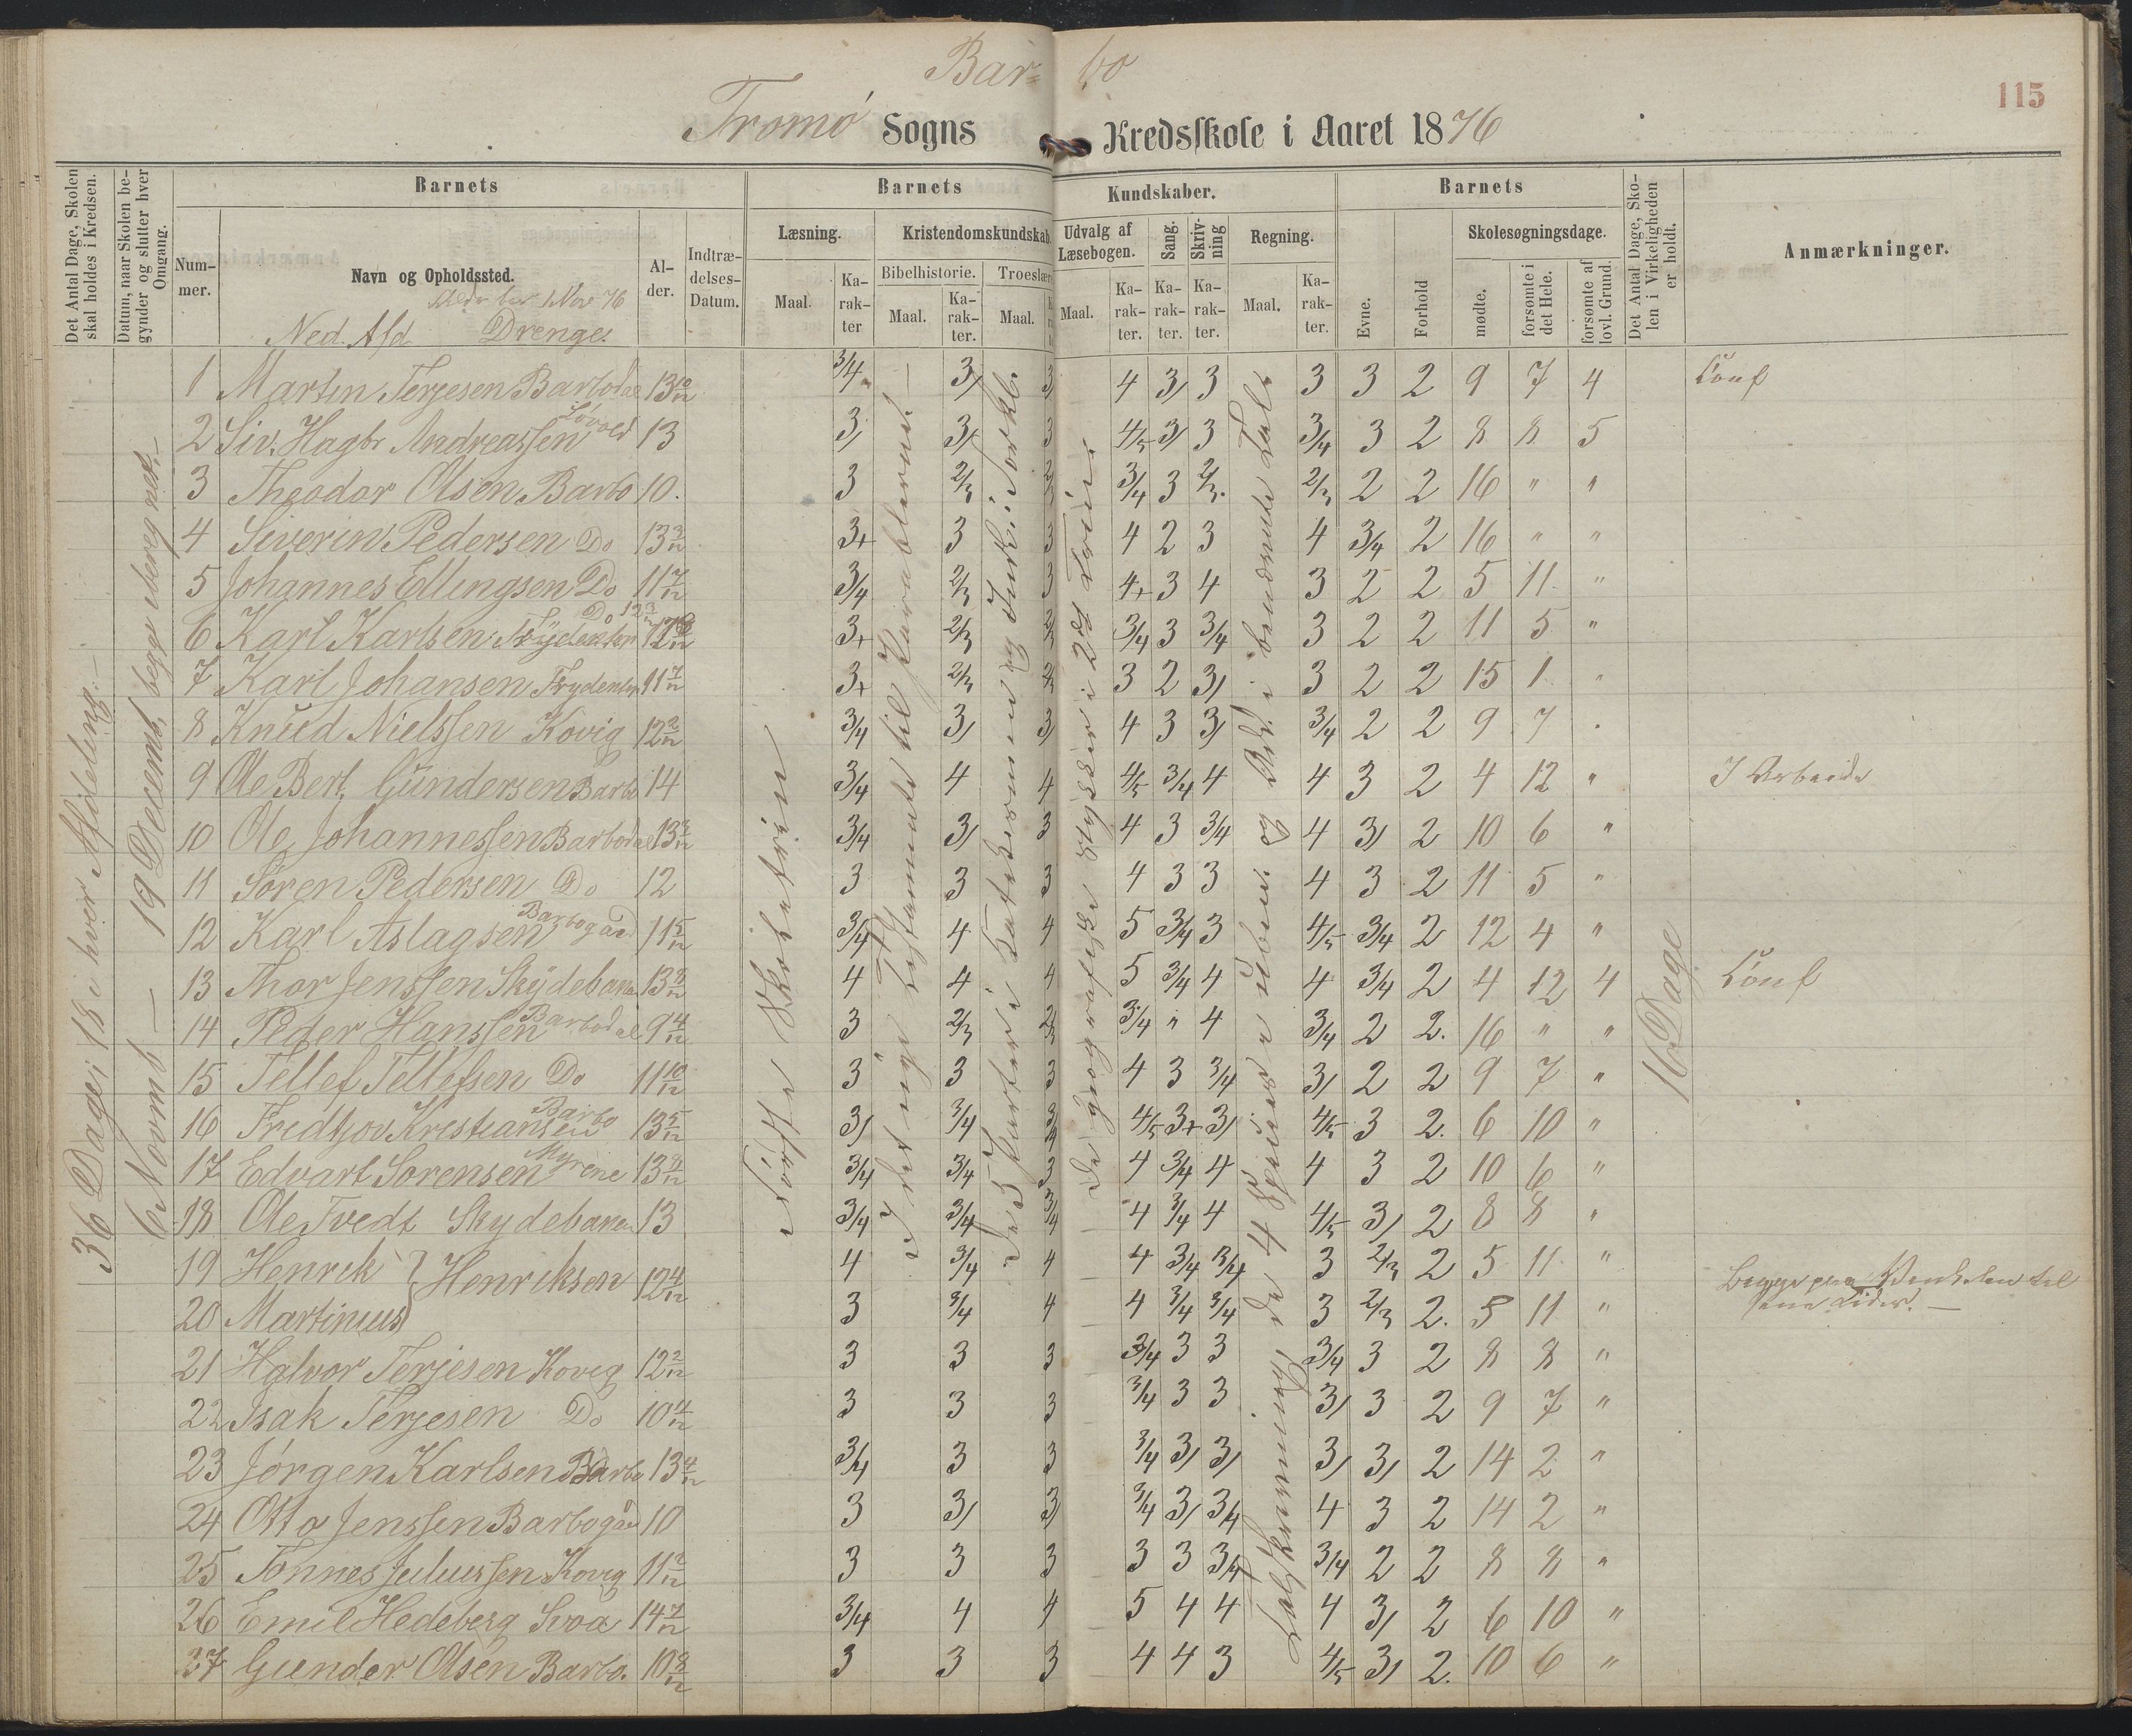 Bar- bo
115
Tromö Sogns Kredsskole i Aaret 1876
Det Antal Dage, Skolen skal holdes i Kredsen.
Datum, naar Skolen begynder og slutter hver Omgang.
Barnets
Barnets Kundskaber.
Barnets
Det Antal Dage, Skolen i Virkeligheden er holdt.
Anmærkninger.
Nummer.
Navn og Opholdssted.
Alder.
Indtrædelses-Datum.
Læsning.
Kristendomskundskab.
Udvalg af Læsebogen.
Sang.
Skrivning
Regning.
Evne.
Forhold
Skolesøgningsdage.
Bibelhistorie.
Troeslære
Maal.
Karakter
Maal.
Karakter.
Maal.
Maal.
Karakter.
Karakter.
Karakter.
Maal.
Karakter.
mødte.
forsømte i det Hele.
forsømte af lovl. Grund.
Nov 76
Ned. Afd Drenge.
36 Dage; 18 i hver Afdeling.
6 Novemb — 19 Decemb, begge iberegnet.
1 Martin Terjesen Barbodal 13 10/12 3/4 3/ 3/ 4 3/ 3 3 3 2 9 7 4 Conf
2 Siv. Hagbr Andreassen Lövold 13 3/ 3/ 3 4/5 3/ 3 3/4 3 2 8 8 5
3 Theodor Olsen Barbo 10. 3 2/3 2/3 3/4 3 2/3. 2/3 2 2 16 " "
4 Siverin Pedersen Do 13 3/12 3+ 3 3 4 2 3 4 3/4 2 16 " "
5 Johannes Ellingsen Do 11 7/12 3/4 2/3 3 4+ 3 4 3 2 2 5 11 "
6 Karl Karlsen Do 12 3/12 3+ 2/3 2/3 3/4 3 3/4 3 2 2 11 5 "
7 Karl Johansen Frydenlun 11 7/12 3+ 2/3 2/3 3 2 3/ 3 2 2 15 1 "
8 Knud Nielssen Kovig 12 2/12 3/4 3/ 3/ 4 3 3/ 3/4 2 2 9 7 "
9 Ole Bert. Gundersen Barbo 14 3/4 4 4 4/5 3/4 4 4 3 2 4 12 " I Arbeide
10 Ole Johannessen Barbodal 13 3/12 3/4 3/ 3 4 3 3/4 4 3/ 2 10 6 "
11 Sören Pedersen Do 12 3 3 3 4 3 3 4 3 2 11 5 "
12 Karl Aslagsen Barbogård 11 5/12 3/4 4 4 5 3/4 3 4/5 3/4 2 12 4 "
13 Thor Jenssen Skydebanen 13 8/12 4 4 4 5 3/4 4 4 3/4 2 4 12 4 Conf
14 Peder Hanssen Barbodal 9 4/12 3 2/3 2/3 3/4 " 4 3/4 2 2. 16 " "
15 Tellef Tellefsen Do 11 10/12 3 3 3 4 3 3/4 3/ 2 2 9 7 "
16 Fredtjov Kristiansen Barbo 13 5/12 3/ 3/4 3/4 4/5 3+ 3/ 4/5 3 2. 6 10 "
17 Edvart Sorensen Myrene 13 8/12 3/4 3/4 3 4 3/4 4 4 3 2 10 6 "
18 Ole Tvedt Skydebanen 13 3/4 3/4 3/4 4 3/4 4 4/5 3/ 2 8 8 "
19 Henrik } Henriksen 12 4/12 4 3/4 4 4 3/4 3/4 3 2/3 2 5 11 "
20 Martinus 3 3/4 4 4 3/4 3/4 3 2/3 2. 5 11 "
21 Halvor Terjesen Kovig 12 2/12 3 3 3 3/4 3 3 3/4 3 2 8 8 "
22 Isak Terjesen Do 10 4/12 3 3 3 3/4 3 3 3/ 3 2 9 7 "
23 Jörgen Karlsen Barbo 13 4/12 3/4 3 3 3/4 3/ 3/ 3/ 3/ 2 14 2 "
24 Otto Jenssen Barbogår 10 3 3/ 3/ 3/4 3/ 3/4 4 3 2 14 2 "
25 Tönnes Juliussen Kovig 11 2/12 3 3 3 3 3 3/4 3/4 2 2 8 8 "
26 Emil Hedeberg Svoa 14 7/12 3/4 4 4 5 4 4 4 3/ 2 6 10 "
27 Gunder Olsen Barbo. 10 8/12 3 3 3 4 4 3 4/5 3/ 2. 10 6 "
16 Dage